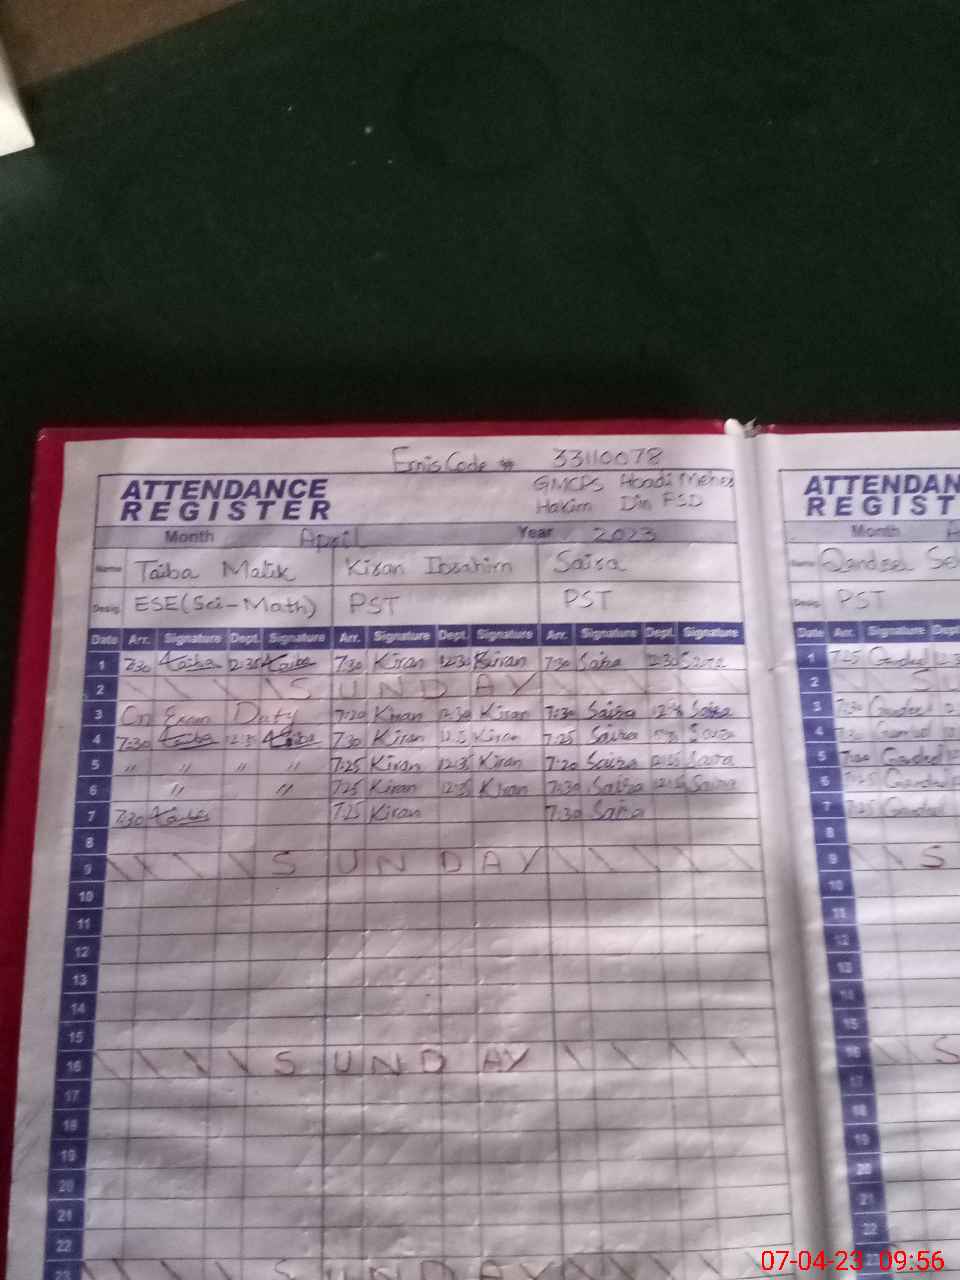 Emis Code # 33110078
ATTENDANCE REGISTER
GMCPS Abadi Meher
Hakim Din FSD
Month April Year 2023
Name Taiba Malik Kiran Ibrahim Saira
Desig. ESE(Sci-Math) PST PST
Date Arr. Signature Dept. Signature Arr. Signature Dept. Signature Arr. Signature Dept. Signature
1 7:30 Taiba 12:35 Taiba 7:30 Kiran 12:30 Kiran 7:30 Saira 12:30 Saira
2 SUNDAY
3 On Exam Duty 7:20 Kiran 12:30 Kiran 7:30 Saira Saira
4 7:30 Taiba 12:35 Taiba 7:30 Kiran Kiran 7:25 Saira Saira
5 " " " " 7:25 Kiran 12:35 Kiran 7:20 Saira 12:35 Saira
6 " " 7:25 Kiran 12:35 Kiran 7:30 Saira Saira
7 7:30 Taiba 7:25 Kiran 7:30 Saira
8
9 SUNDAY
10
11
12
13
14
15
16 SUNDAY
17
18
19
20
21
22
23 SUNDAY
ATTENDAN
REGIST
Month A
Name Qandeel Se
Desig. PST
Date Arr. Signature Dep
1 7:25
2 SU
3 7:30
4 7:30
5
6 7:25
7 7:25
8
9 S
10
11
12
13
14
15
16 S
17
18
19
20
21
22
23
07-04-23 09:56